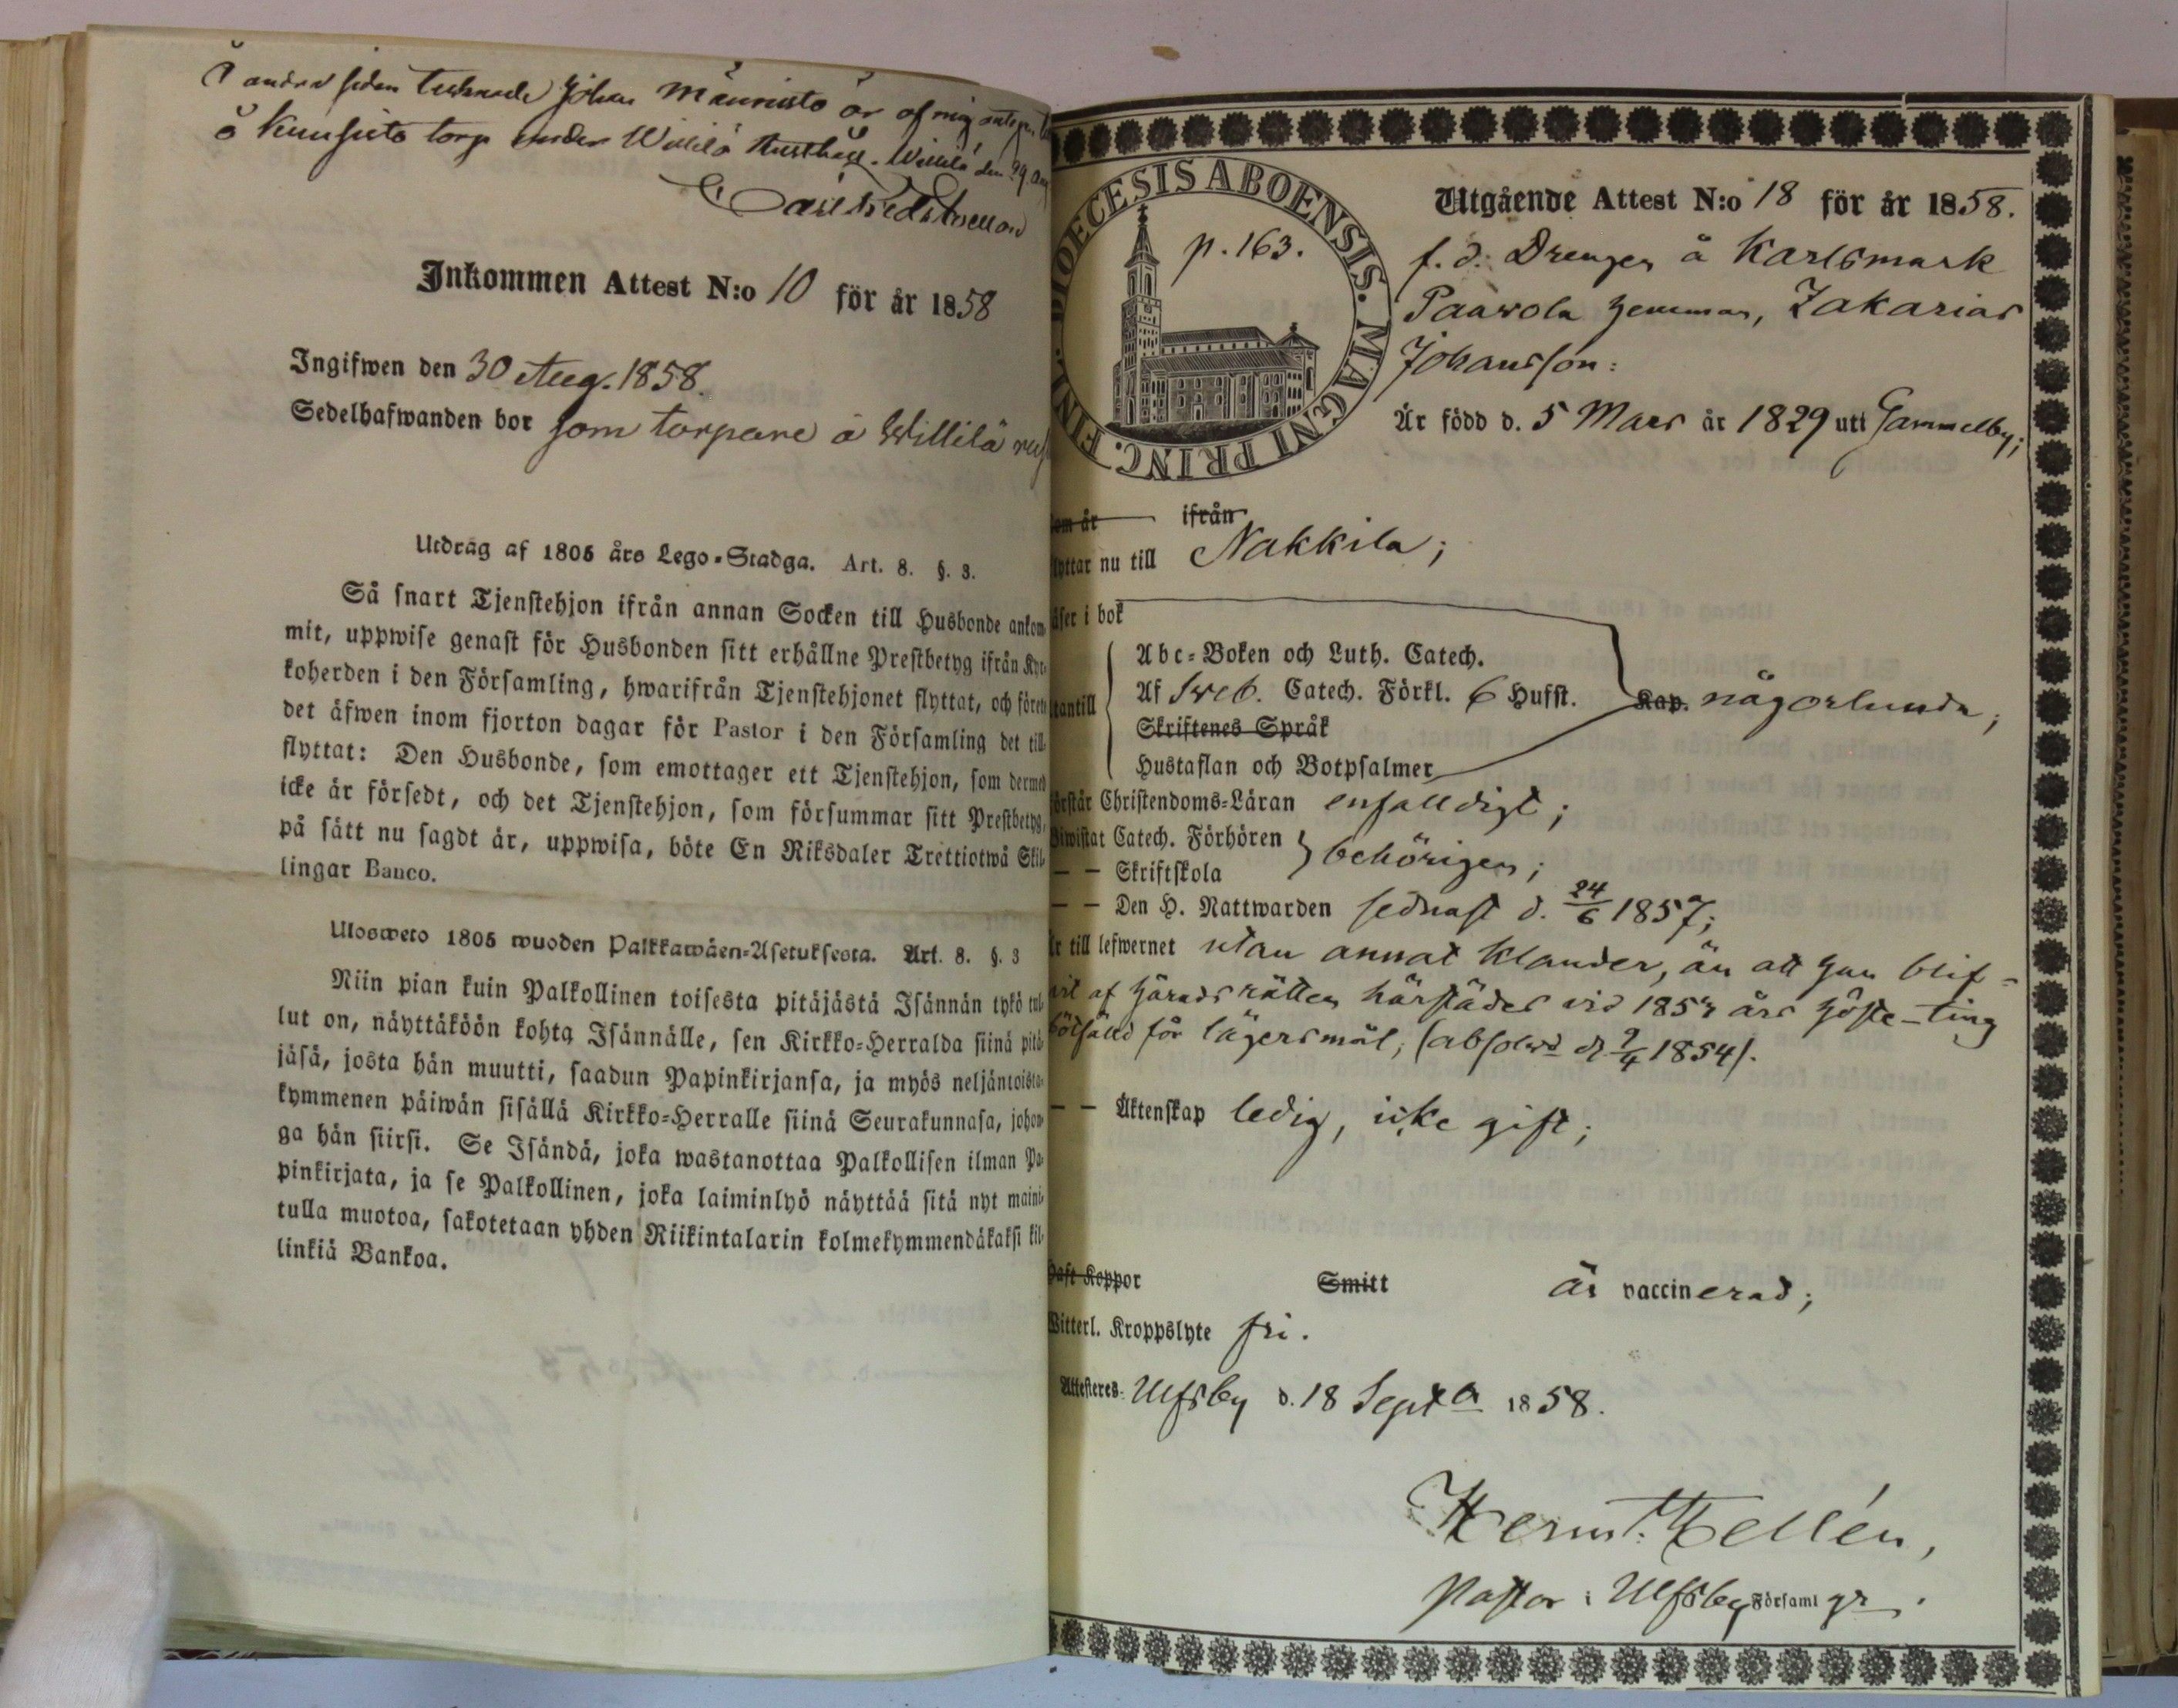 å andra sidan tecknade Johan Männistö är af mig
å Kuusisto torp under Willilä Rusthåll. Willilä den 29 Aug
Inkommen Attest N:o 10 för år 1858
Ingifwen den 30 Aug. 1858.
Sedelhafwanden bor som torpare å Willilä
Utdrag af 1805 års Lego-Stadga. Art. 8. §. 3.
Så snart Tjenstehjon ifrån annan Socken till Husbonde ankom-
mit, uppwise genast för Husbonden sitt erhållne Prestbetyg ifrån Kyr-
koherden i den Församling, hwarifrån Tjenstehjonet flyttat, och förete
det äfwen inom fjorton dagar för Pastor i den Församling det till-
flyttat: Den Husbonde, som emottager ett Tjenstehjon, som dermed
icke är försedt, och det Tjenstehjon, som försummar sitt Prestbetyg,
på sätt nu sagdt är, uppwisa, böte En Riksdaler Trettiotwå Skil-
lingar Banco.
Ulosweto 1805 wuoden Palkkawäen-Asetuksesta. Art. 8. §. 3
Niin pian kuin Palkollinen toisesta pitäjästä Isännän tykö tul-
lut on, näyttäköön kohta Isännälle, sen Kirkko-Herralda siinä pitä-
jäsä, josta hän muutti, saadun Papinkirjansa, ja myös neljäntoista-
kymmenen päiwän sisällä Kirkko-Herralle siinä Seurakunnasa, johon-
ga hän siirsi. Se Isändä, joka wastanottaa Palkollisen ilman Pa-
pinkirjata, ja se Palkollinen, joka laiminlyö näyttää sitä nyt maini-
tulla muotoa, sakotetaan yhden Riikintalarin kolmekymmendäkaksi kil-
linkiä Bankoa.
DIOECESIS ABOENSIS. MAGNI PRINC. FINL.
p. 163.
Utgående Attest N:o 18 för år 1858.
f. d. Drengen å Karlsmark
Paavola hemman, Zakarias
Johansson:
Är född d. 5 Mars år 1829 uti Gammelby;
som är ifrån
flyttar nu till Nakkila;
läser i bok
utantill
Abc-Boken och Luth. Catech.
Af Sveb. Catech. Förkl. 6 Hufst. Kap. någorlunda;
Skriftenes Språk
Hustaflan och Botpsalmer
förstår Christendoms-Läran enfaldigt;
Biwistat Catech. Förhören
behörigen;
— — Skriftskola
— — Den H. Nattwarden sednast d. 24/6 1857;
Är till lefwernet utan annat klander, än att han blif-
vit af häradsrätten härstädes vid 1853 års höste-ting
bötfälld för lägersmål, (absolvd d. 9/4 1854).
— — Äktenskap ledig, icke gift;
Haft Koppor Smitt är vaccinerad;
Witterl. Kroppslyte fri.
Attesteras: Ulfsby d. 18 Septr 1858.
Herm. Hellén,
Pastor i Ulfsby Församl gr.